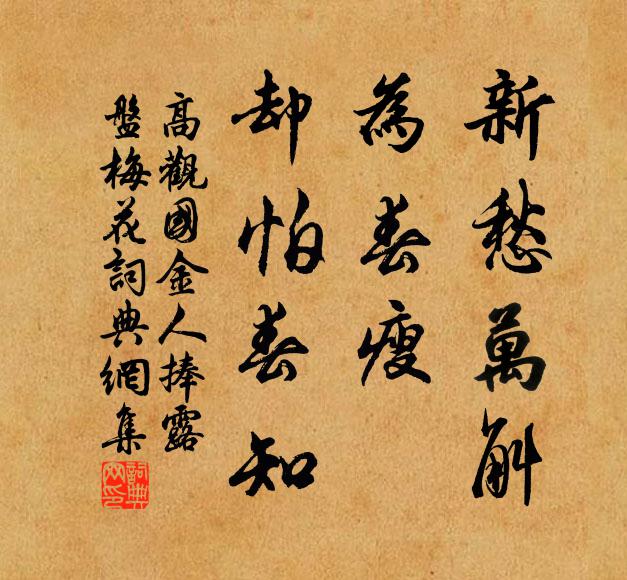 新愁萬斛
為春瘦
却怕春知
高觀國金人捧露
盤梅花詞典網集
詞典
网印